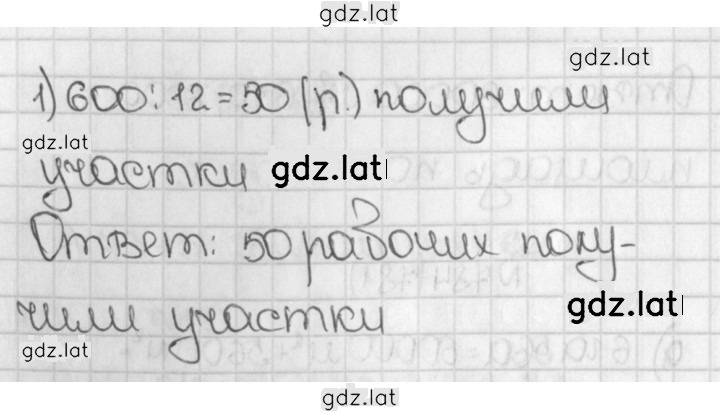 gdz.lat
gdz.lat
1) 600 : 12 = 50 (р.) получили
gdz.lat
участки gdz.lat
Ответ: 50 рабочих полу-
gdz.lat
чили участки
gdz.lat
gdz.lat